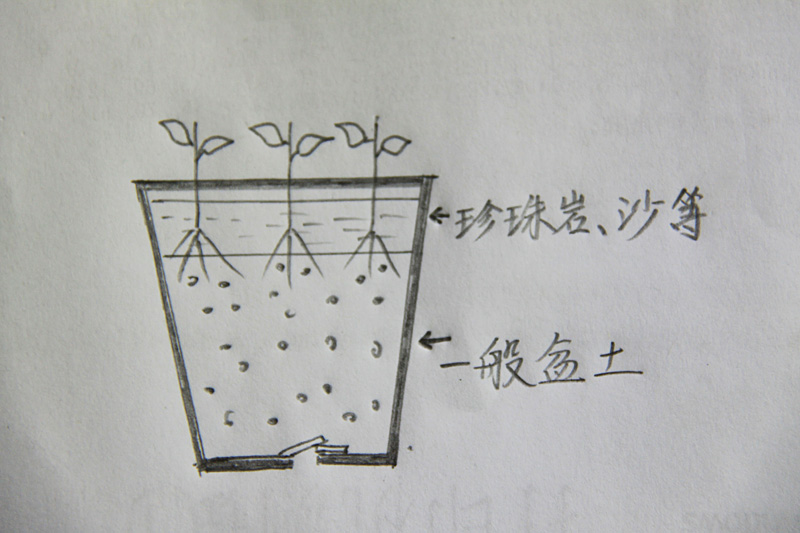 珍珠岩、沙等
一般盆土